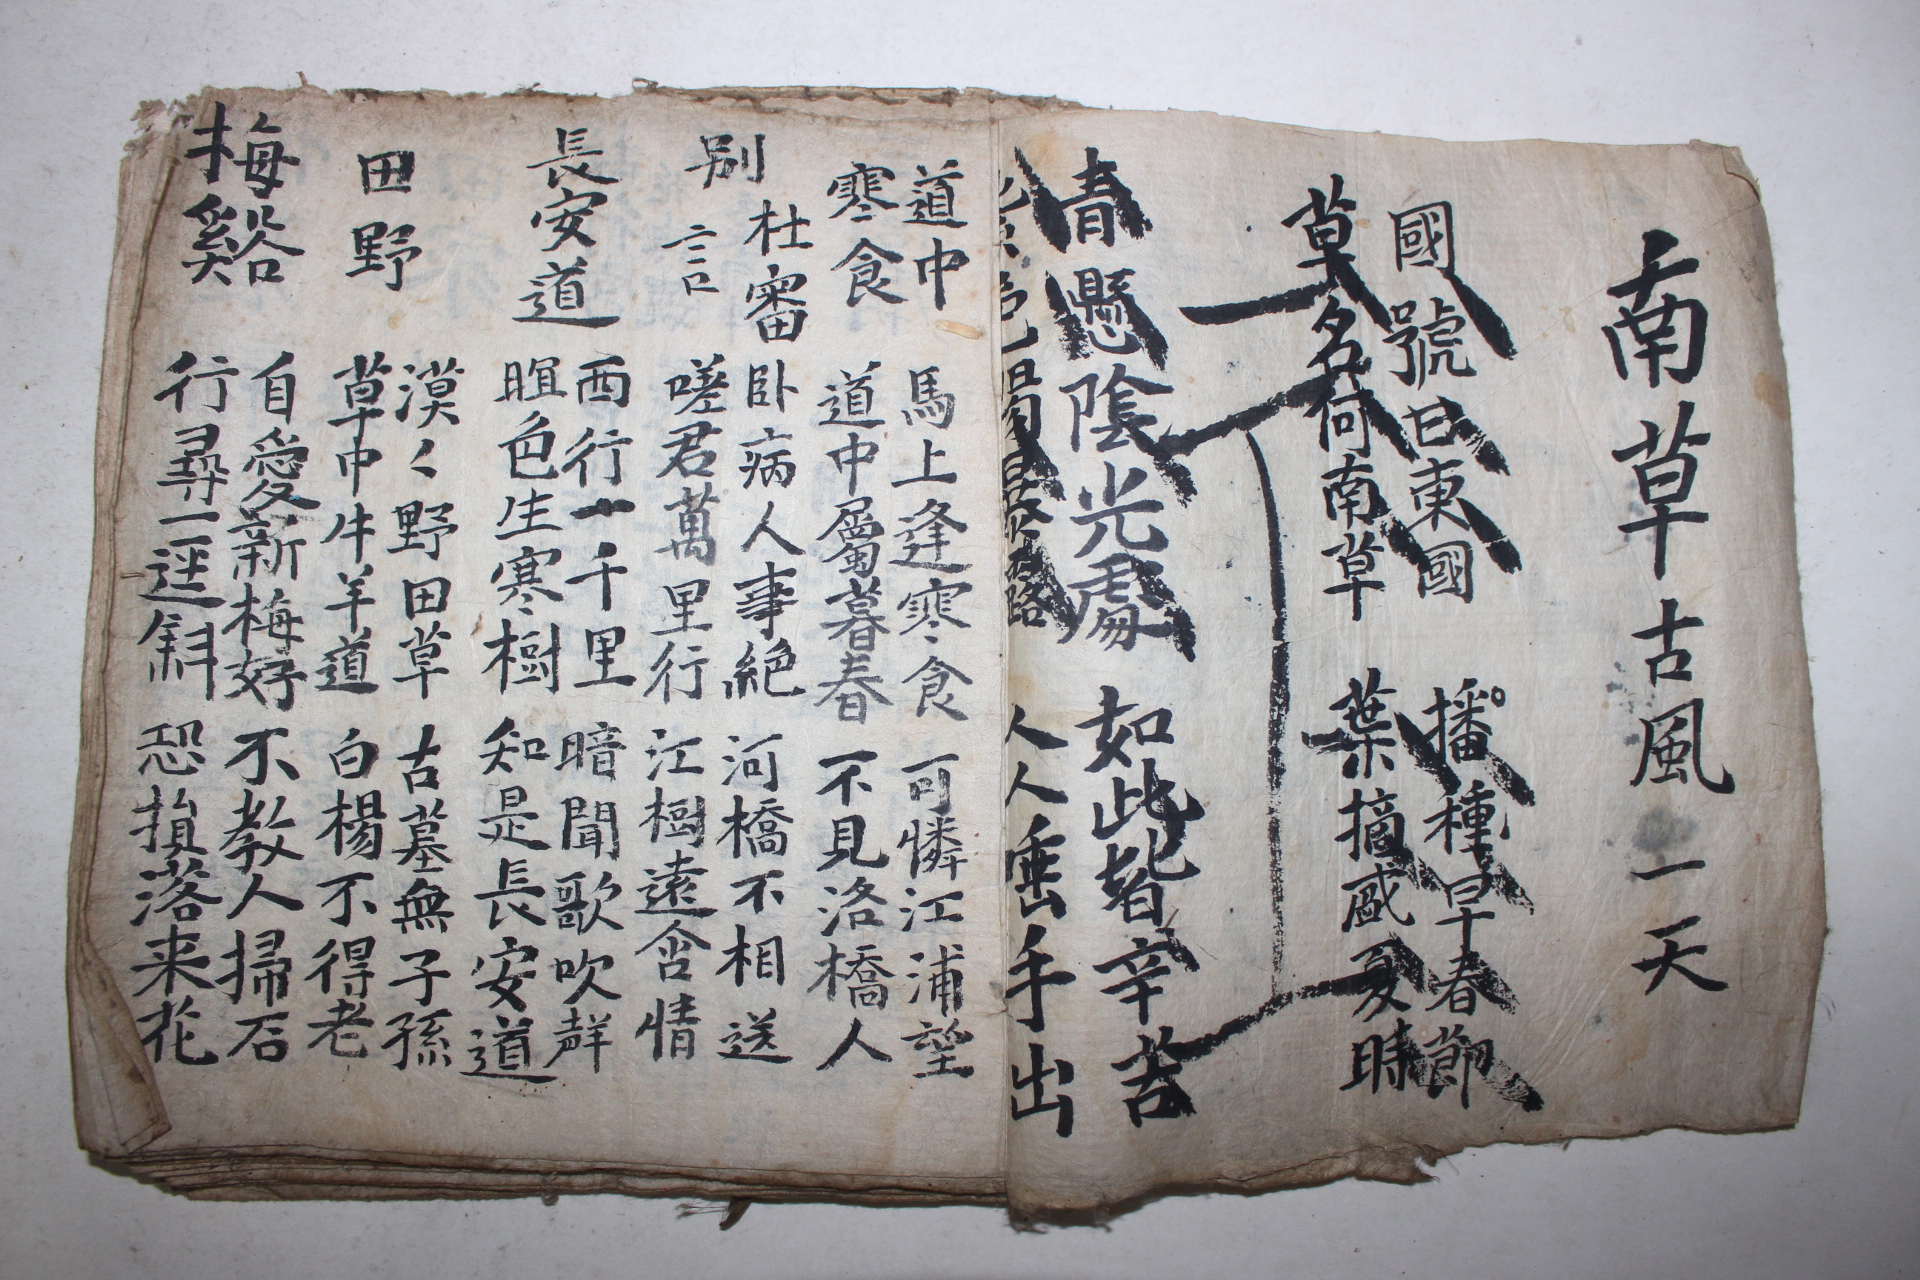 南草古風 一天
國號曰東國 播種早春節
草名何南草 葉摘盛夏時
青懸陰光處 如此皆辛苦
人人垂手出
道中寒食 馬上逢寒食 可憐江浦望
道中屬暮春 不見洛橋人
別杜審言 卧病人事絶 河橋不相送
嗟君萬里行 江樹遠含情
長安道 西行一千里 暗聞歌吹聲
暄色生寒樹 知是長安道
田野 漠々野田草 古墓無子孫
草中牛羊道 白楊不得老
梅谿 自愛新梅好 不教人掃石
行尋一逕斜 恐損落来花